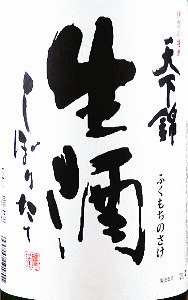 天下錦
ふくもちのさけ
生酒
しぼりたて